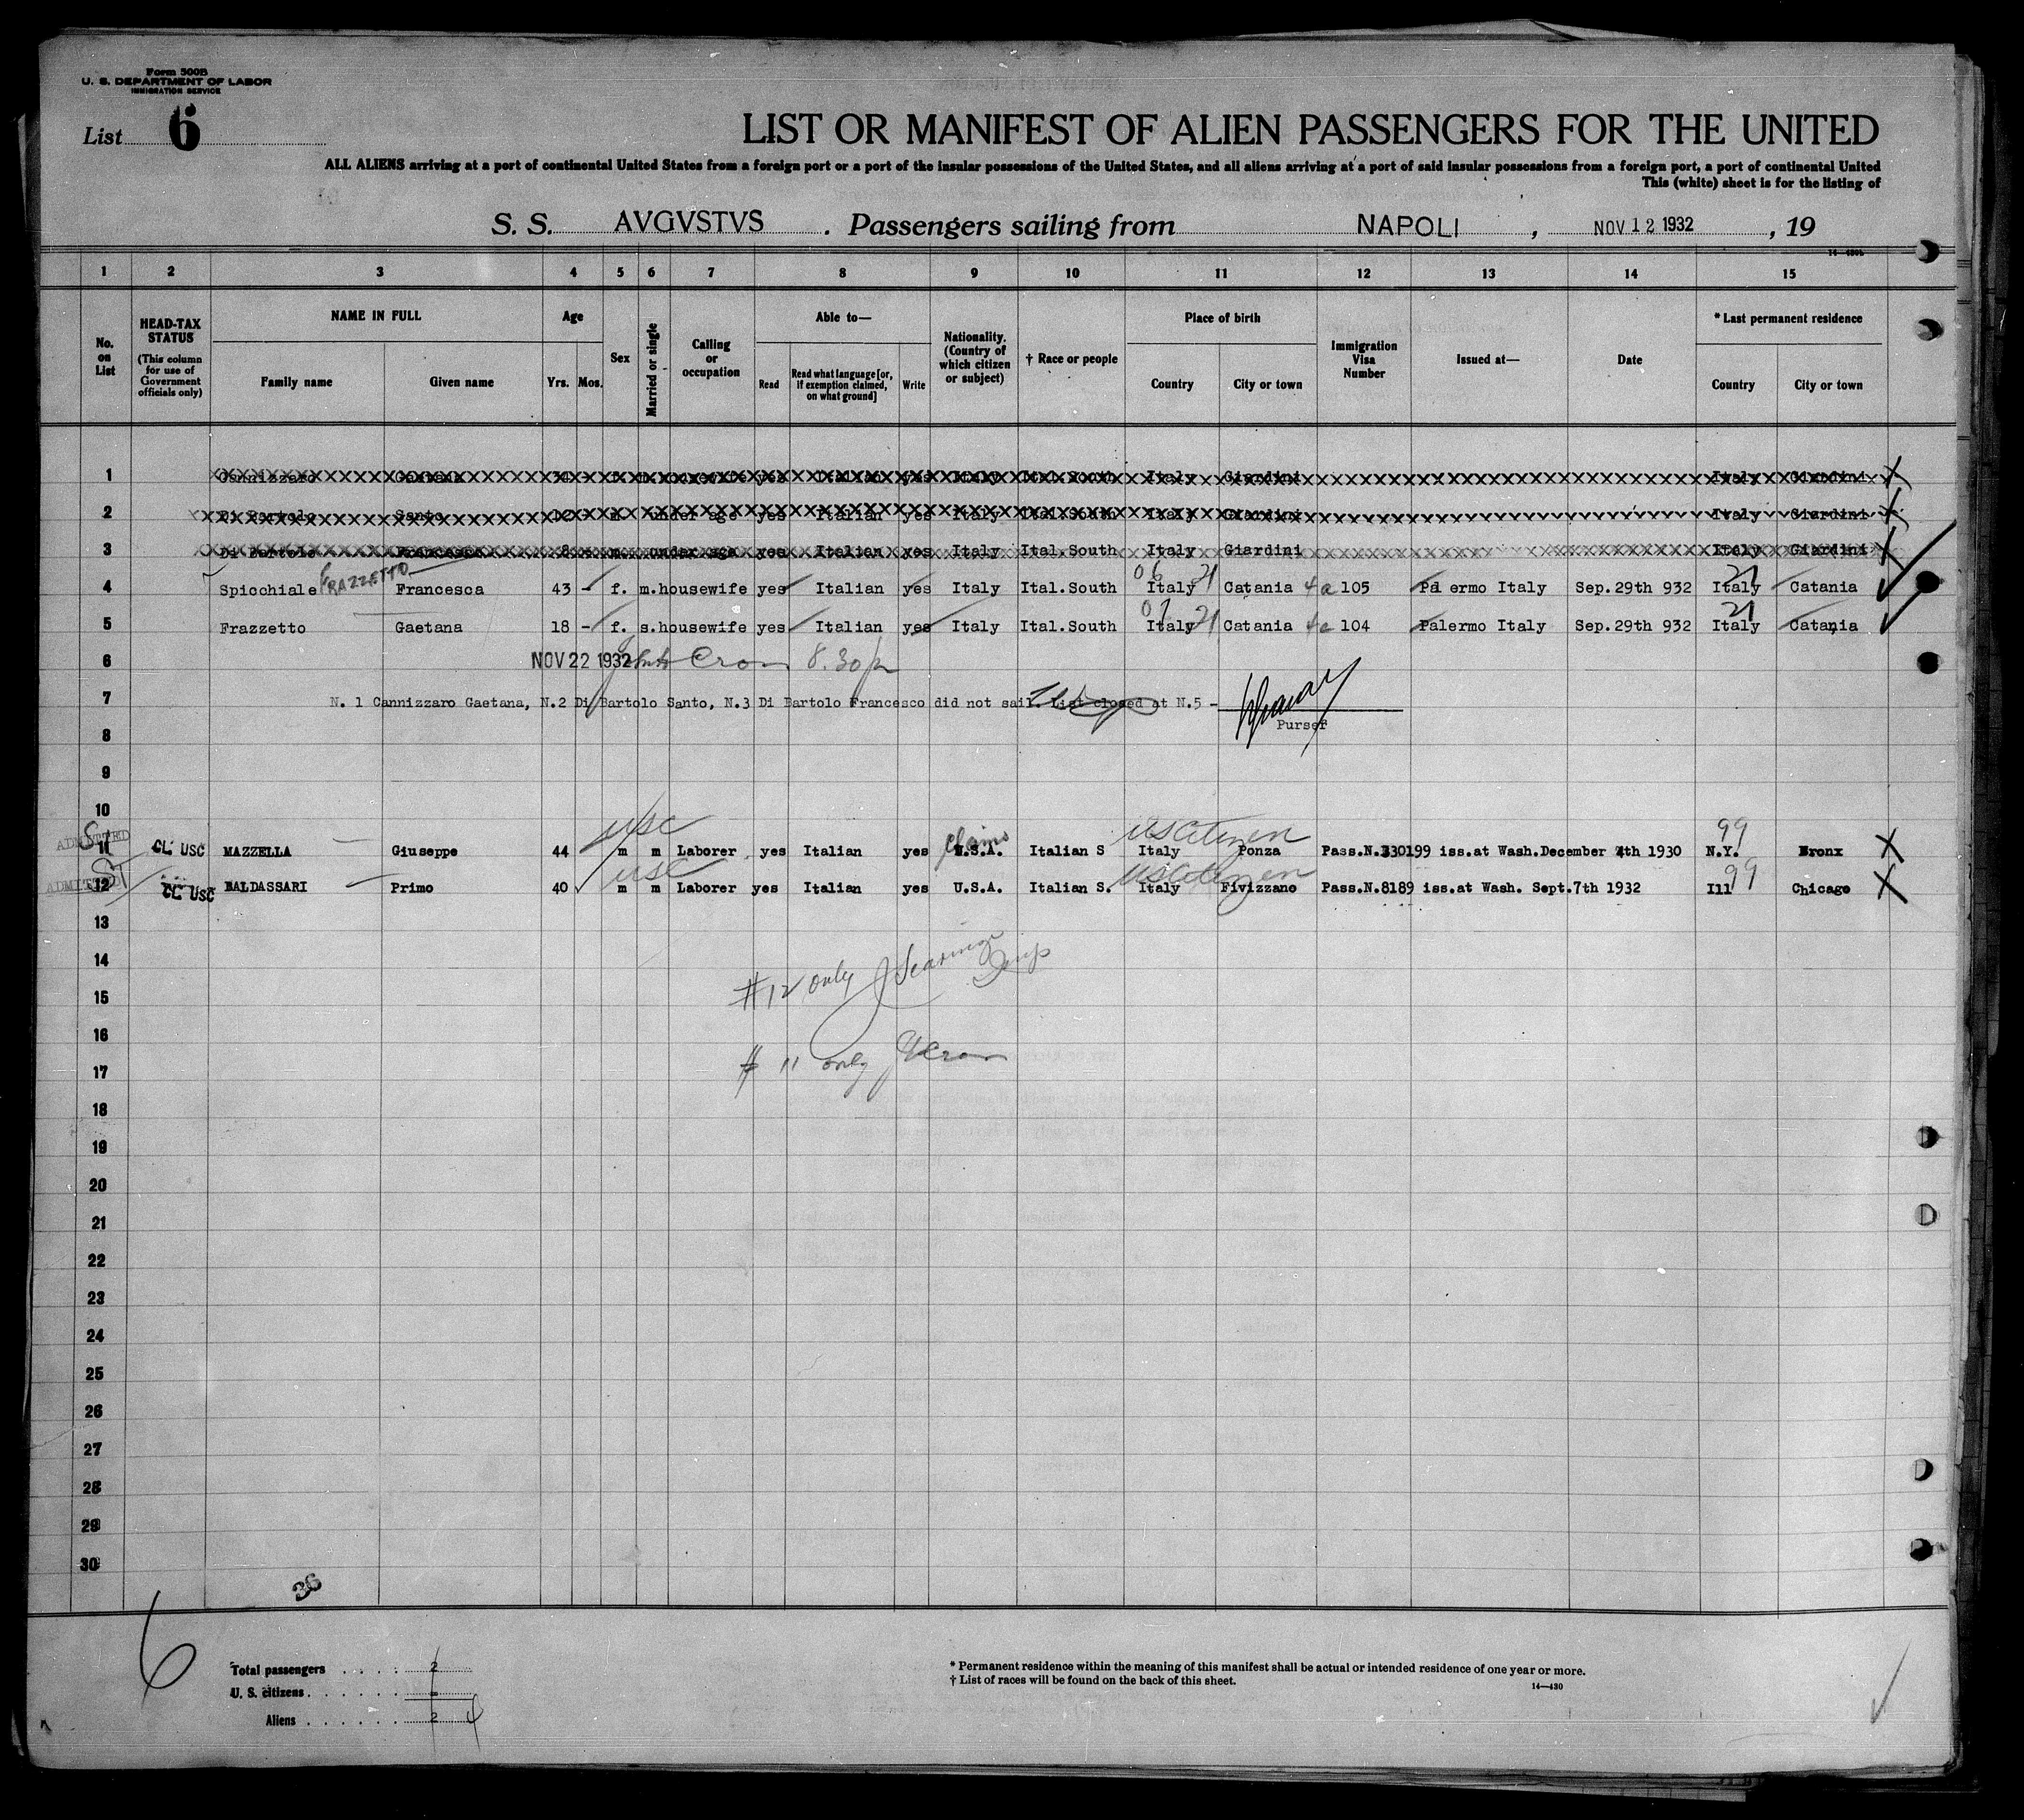 Form 500B
U. S. DEPARTMENT OF LABOR
IMMIGRATION SERVICE
List 6
LIST OR MANIFEST OF ALIEN PASSENGERS FOR THE UNITED
ALL ALIENS arriving at a port of continental United States from a foreign port or a port of the insular possessions of the United States, and all aliens arriving at a port of said insular possessions from a foreign port, a port of continental United
This (white) sheet is for the listing of
S. S. AVGVSTVS. Passengers sailing from NAPOLI, NOV 12 1932, 19
1 2 3 4 5 6 7 8 9 10 11 12 13 14 15
No. on List
HEAD-TAX STATUS (This column for use of Government officials only)
NAME IN FULL Family name Given name
Age Yrs. Mos.
Sex
Married or single
Calling or occupation
Able to— Read Read what language [or, if exemption claimed, on what ground] Write
Nationality. (Country of which citizen or subject)
† Race or people
Place of birth Country City or town
Immigration Visa Number
Issued at—
Date
* Last permanent residence Country City or town
1 Cannizzaro Gaetana 34 - f. m. housewife yes Italian yes Italy Ital.South Italy Giardini Italy Giardini X
2 Di Bartolo Santo 12 - m. under age yes Italian yes Italy Ital.South Italy Giardini Italy Giardini X
3 Di Bartolo Francesco 8 - m. under age yes Italian yes Italy Ital.South Italy Giardini Italy Giardini X
4 Spicchiale FRAZZETTO Francesca 43 - f. m. housewife yes Italian yes Italy Ital.South 06 Italy 21 Catania 4a 105 Pa ermo Italy Sep.29th 932 21 Italy Catania
5 Frazzetto Gaetana 18 - f. s. housewife yes Italian yes Italy Ital.South 07 Italy 21 Catania 4a 104 Palermo Italy Sep.29th 932 21 Italy Catania
6 NOV 22 1932 8.30 p
7 N. 1 Cannizzaro Gaetana, N.2 Di Bartolo Santo, N.3 Di Bartolo Francesco did not sail. List closed at N.5 -
Purser
8
9
10
ADMITTED SI 11 CL USC MAZZELLA Giuseppe 44 usc m m Laborer yes Italian yes claims U.S.A. Italian S US Citizen Italy Ponza Pass.N.330199 iss.at Wash.December 4th 1930 99 N.Y. Bronx X
ADMITTED SI 12 CL USC BALDASSARI Primo 40 usc m m Laborer yes Italian yes U.S.A. Italian S. US Citizen Italy Fivizzano Pass.N.8189 iss.at Wash. Sept.7th 1932 Ill 99 Chicago X
13
14
#12 only Insp
15
16
# 11 only
17
18
19
20
21
22
23
24
25
26
27
28
29
30
36
6
Total passengers . . . . . 2
U. S. citizens . . . . . . -
Aliens . . . . . . 2 4
* Permanent residence within the meaning of this manifest shall be actual or intended residence of one year or more.
† List of races will be found on the back of this sheet.
14—430